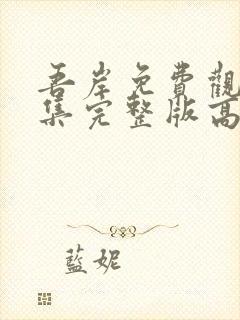 吾岸免費觀
集完整版高
藍妮